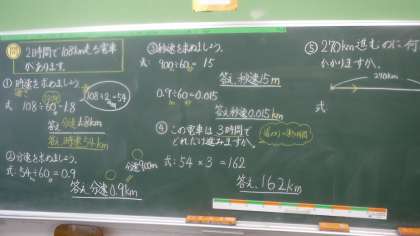 問
2時間で108km走る電車
があります。
① 時速を求めましょう。
式: 108÷60=1.8
108÷2=54
答え 分速1.8km
答え 時速54km
② 分速を求めましょう。
式: 54÷60=0.9
分速900m
答え 分速0.9km
③ 秒速を求めましょう。
式: 900÷60=15
答え 秒速15m
0.9÷60=0.015
答え 秒速0.015km
④ この電車は3時間で
どれだけ進みますか。
式: 54×3=162
答え 162km
⑤ 270km進むのに何
かかりますか。
270km
式